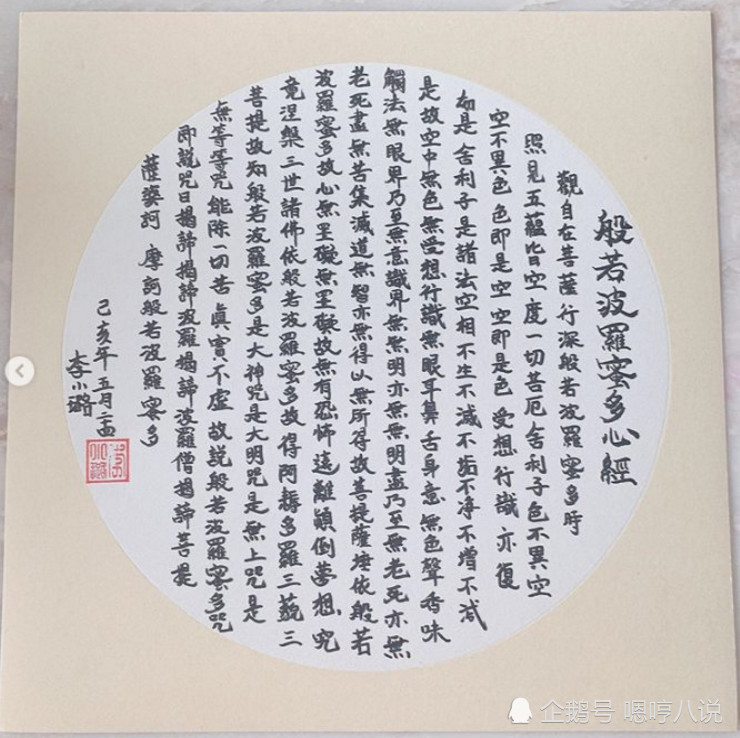 般若波羅蜜多心經
觀自在菩薩行深般若波羅蜜多時
照見五蘊皆空度一切苦厄舍利子色不異空
空不異色色即是空空即是色受想行識亦復
如是舍利子是諸法空相不生不滅不垢不淨不增不減
是故空中無色無受想行識無眼耳鼻舌身意無色聲香味
觸法無眼界乃至無意識界無無明亦無無明盡乃至無老死亦無
老死盡無苦集滅道無智亦無得以無所得故菩提薩埵依般若
波羅蜜多故心無罣礙無罣礙故無有恐怖遠離顛倒夢想究
竟涅槃三世諸佛依般若波羅蜜多故得阿耨多羅三藐三
菩提故知般若波羅蜜多是大神咒是大明咒是無上咒是
無等等咒能除一切苦真實不虛故說般若波羅蜜多咒
即說咒曰揭諦揭諦波羅揭諦波羅僧揭諦菩提
薩婆訶 摩訶般若波羅蜜多
己亥年五月二十四
李小璐
李小璐
企鹅号 嗯哼八说